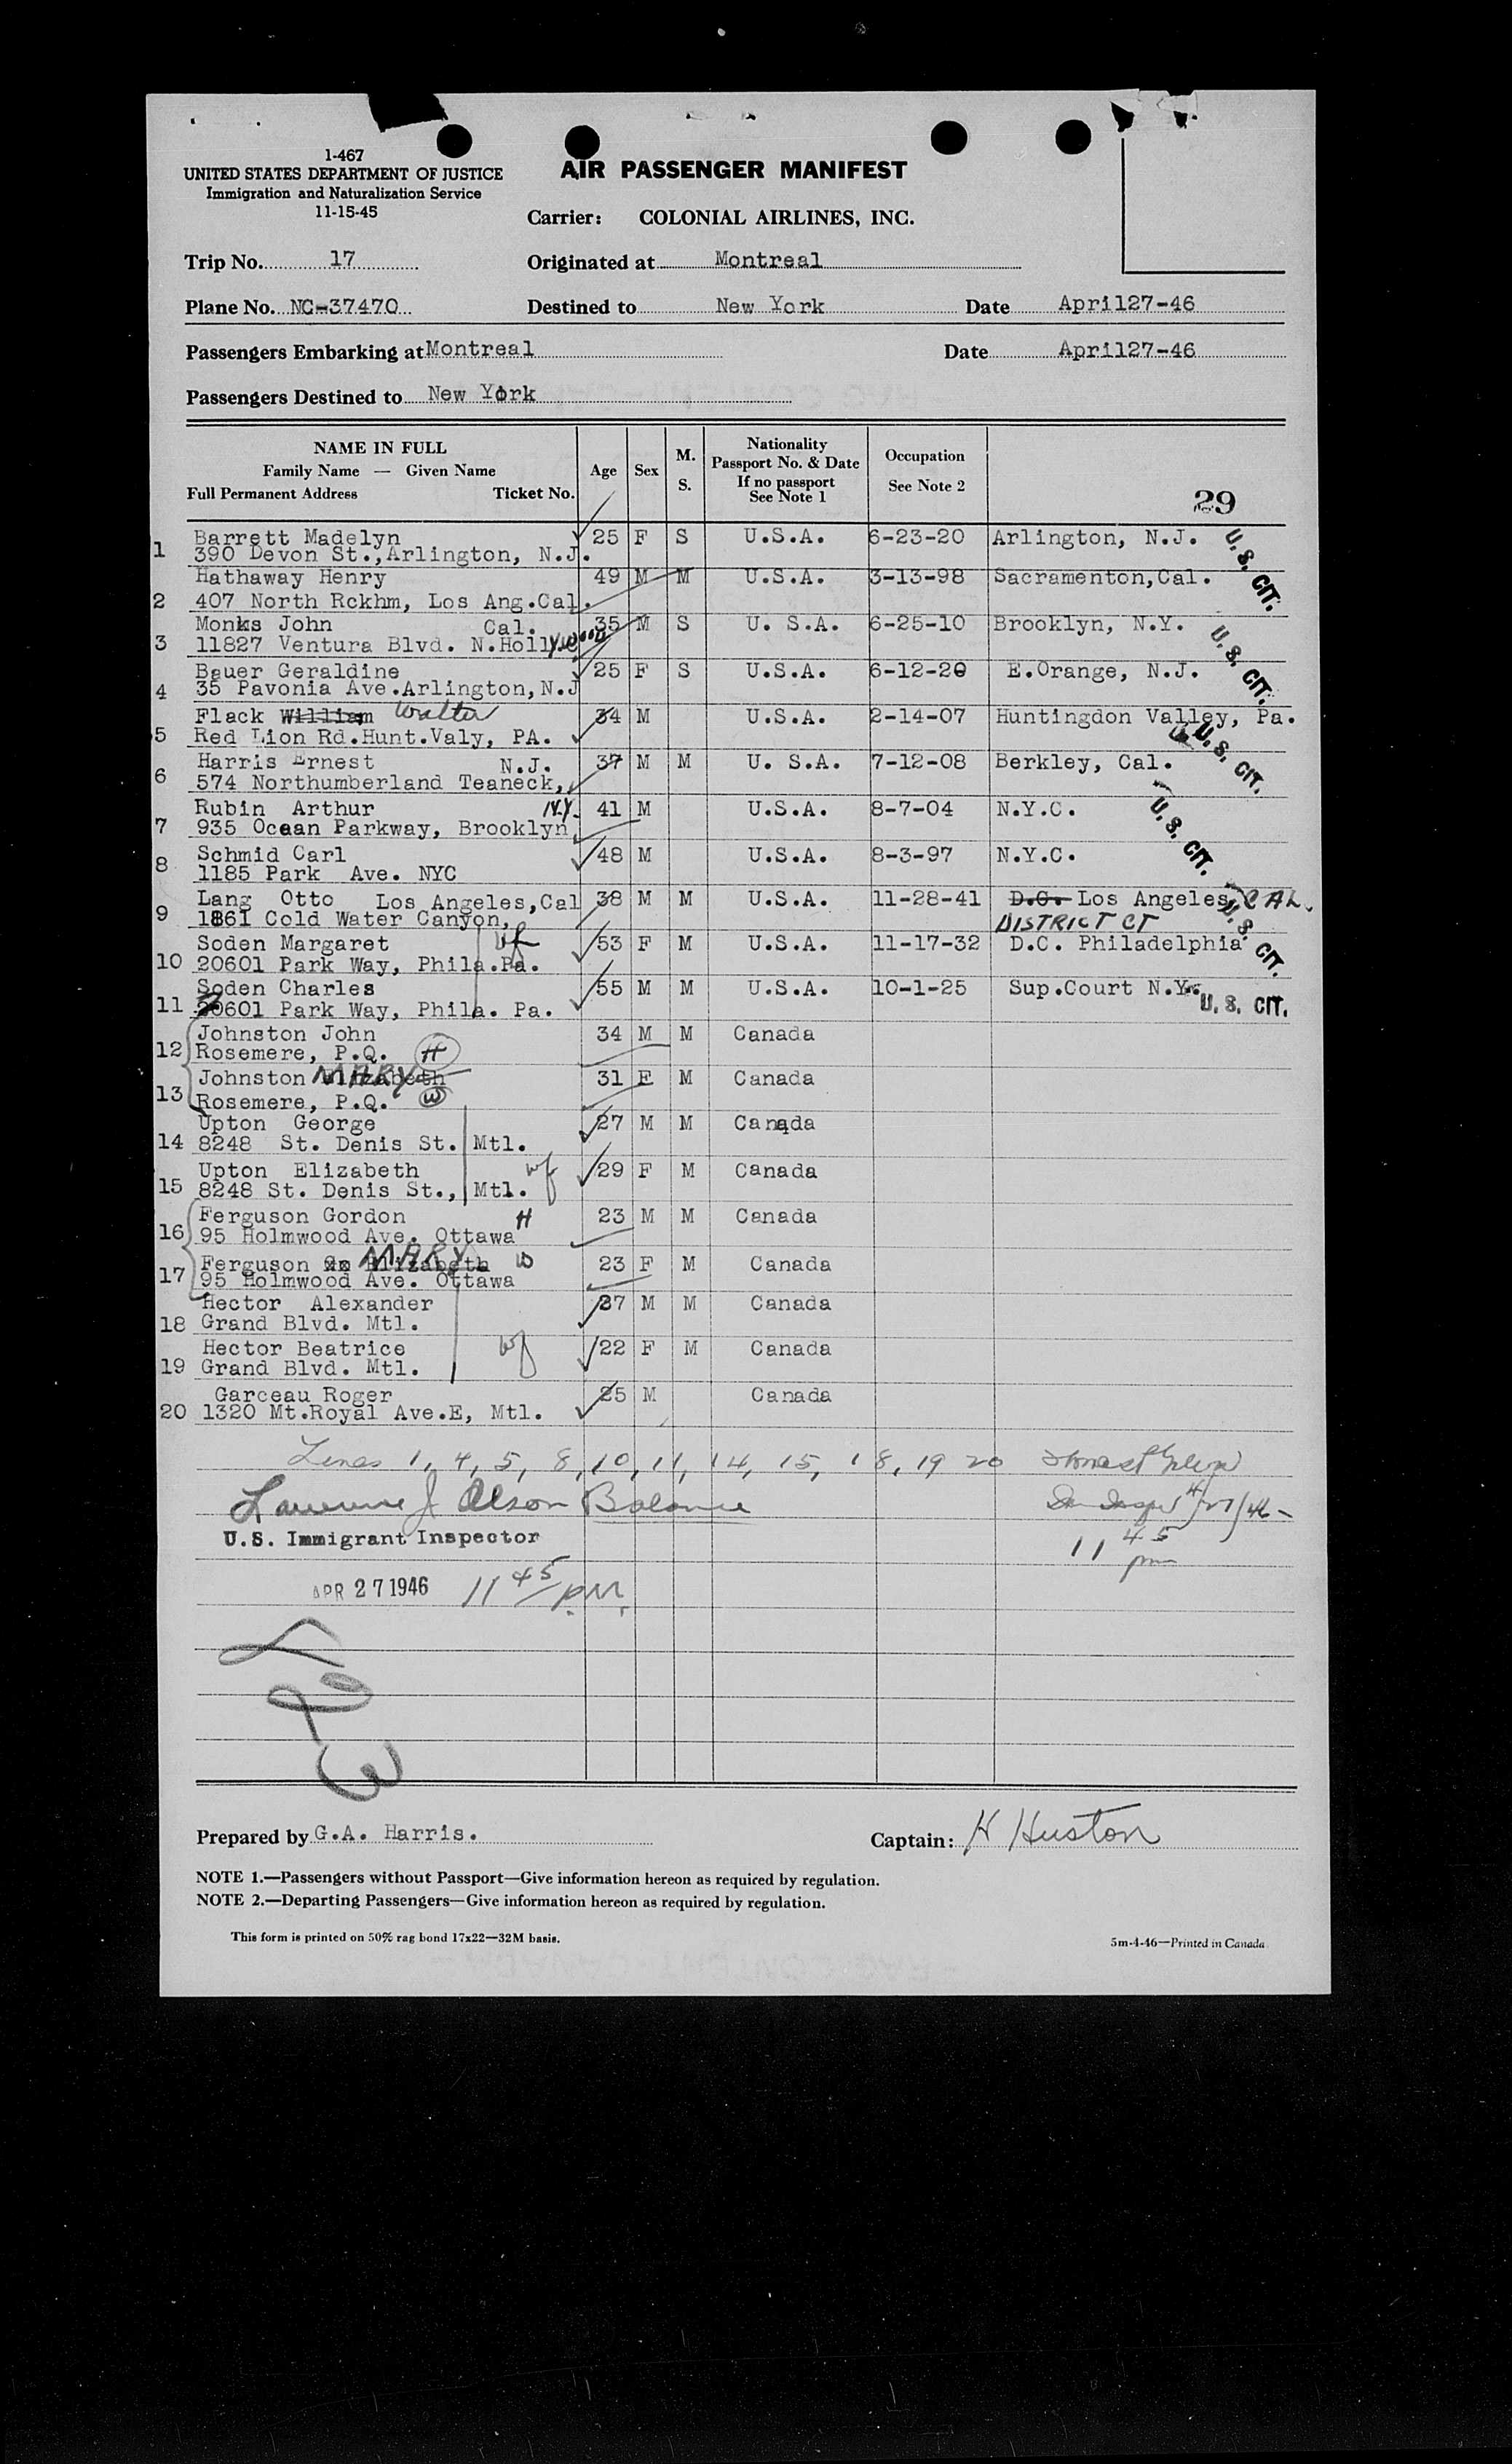 1-467
UNITED STATES DEPARTMENT OF JUSTICE
Immigration and Naturalization Service
11-15-45
AIR PASSENGER MANIFEST
Carrier: COLONIAL AIRLINES, INC.
Trip No. 17 Originated at Montreal
Plane No. NC-37470 Destined to New York Date April27-46
Passengers Embarking at Montreal Date April27-46
Passengers Destined to New York
NAME IN FULL
Family Name — Given Name
Full Permanent Address Ticket No.
Age Sex M. S.
Nationality
Passport No. & Date
If no passport
See Note 1
Occupation
See Note 2
29
1 Barrett Madelyn 25 F S U.S.A. 6-23-20 Arlington, N.J. U.S. CIT.
390 Devon St., Arlington, N.J.
2 Hathaway Henry 49 M M U.S.A. 3-13-98 Sacramenton, Cal.
407 North Rckhm, Los Ang.Cal.
3 Monks John Cal. 35 M S U. S.A. 6-25-10 Brooklyn, N.Y. U.S. CIT.
11827 Ventura Blvd. N.Hollywood
4 Bauer Geraldine 25 F S U.S.A. 6-12-20 E.Orange, N.J.
35 Pavonia Ave.Arlington,N.J
5 Flack William Walter 34 M U.S.A. 2-14-07 Huntingdon Valley, Pa.
Red Lion Rd.Hunt.Valy, PA. U.S. CIT.
6 Harris Ernest N.J. 37 M M U. S.A. 7-12-08 Berkley, Cal.
574 Northumberland Teaneck,
7 Rubin Arthur N.Y. 41 M U.S.A. 8-7-04 N.Y.C. U.S. CIT.
935 Ocean Parkway, Brooklyn,
8 Schmid Carl 48 M U.S.A. 8-3-97 N.Y.C.
1185 Park Ave. NYC
9 Lang Otto Los Angeles,Cal 38 M M U.S.A. 11-28-41 D.C. Los Angeles CAL.
1861 Cold Water Canyon, DISTRICT CT U.S. CIT.
10 Soden Margaret wf 53 F M U.S.A. 11-17-32 D.C. Philadelphia
20601 Park Way, Phila.Pa.
11 Soden Charles 55 M M U.S.A. 10-1-25 Sup.Court N.Y. U.S. CIT.
20601 Park Way, Phila. Pa.
12 Johnston John 34 M M Canada
Rosemere, P.Q. H
13 Johnston Elizabeth MARY 31 F M Canada
Rosemere, P.Q. W
14 Upton George 27 M M Canada
8248 St. Denis St. Mtl.
15 Upton Elizabeth wf 29 F M Canada
8248 St. Denis St., Mtl.
16 Ferguson Gordon H 23 M M Canada
95 Holmwood Ave. Ottawa
17 Ferguson Elizabeth MARY W 23 F M Canada
95 Holmwood Ave. Ottawa
18 Hector Alexander 27 M M Canada
Grand Blvd. Mtl.
19 Hector Beatrice wf 22 F M Canada
Grand Blvd. Mtl.
20 Garceau Roger 25 M Canada
1320 Mt.Royal Ave.E, Mtl.
Lines 1, 4, 5, 8, 10, 11, 14, 15, 18, 19 20
Lawrence J Olson Balance 4/27/46
U.S. Immigrant Inspector 11 45 pm
APR 27 1946 11 45 P.M.
Prepared by G.A. Harris. Captain: K Huston
NOTE 1.—Passengers without Passport—Give information hereon as required by regulation.
NOTE 2.—Departing Passengers—Give information hereon as required by regulation.
This form is printed on 50% rag bond 17x22—32M basis. 5m-4-46—Printed in Canada